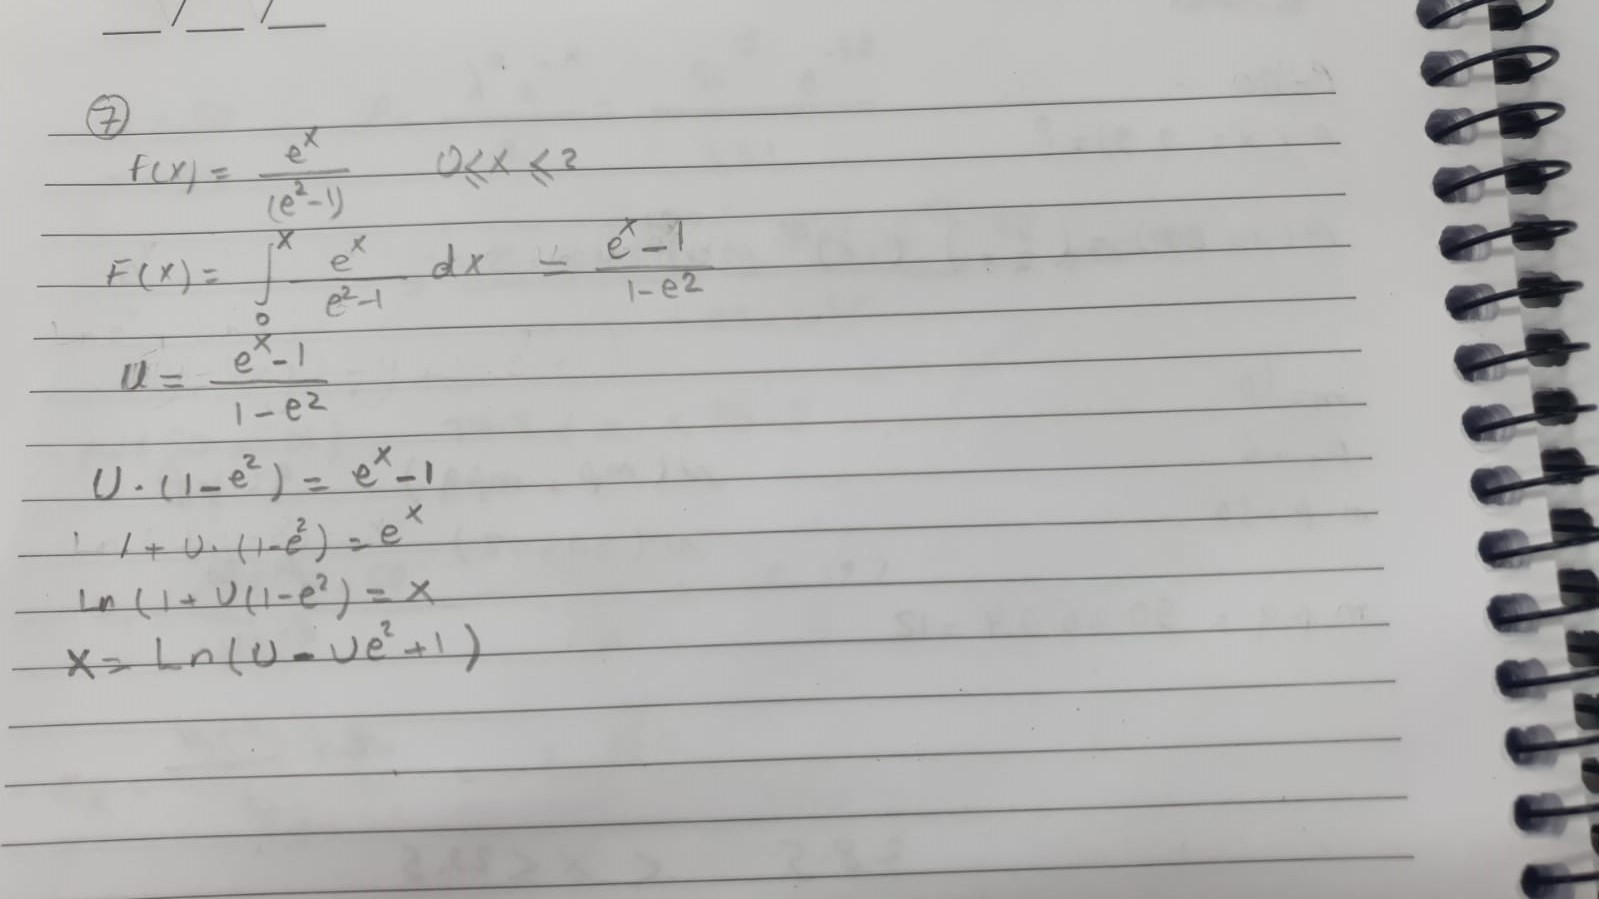 __/__/__
⑦
f(x) = e^x / (e^2-1)   0 ≤ x ≤ 2
F(x) = ∫_0^x e^x / (e^2-1) dx = (e^x-1) / (1-e^2)
U = (e^x-1) / (1-e^2)
U·(1-e^2) = e^x-1
1+U·(1-e^2) = e^x
Ln(1+U(1-e^2) = x
X = Ln(U-Ue^2+1)